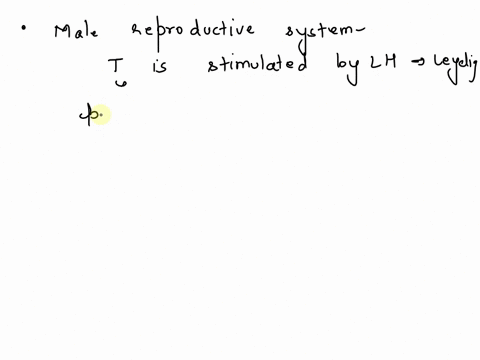 • Male reproductive system-
T is stimulated by LH → leydig
p